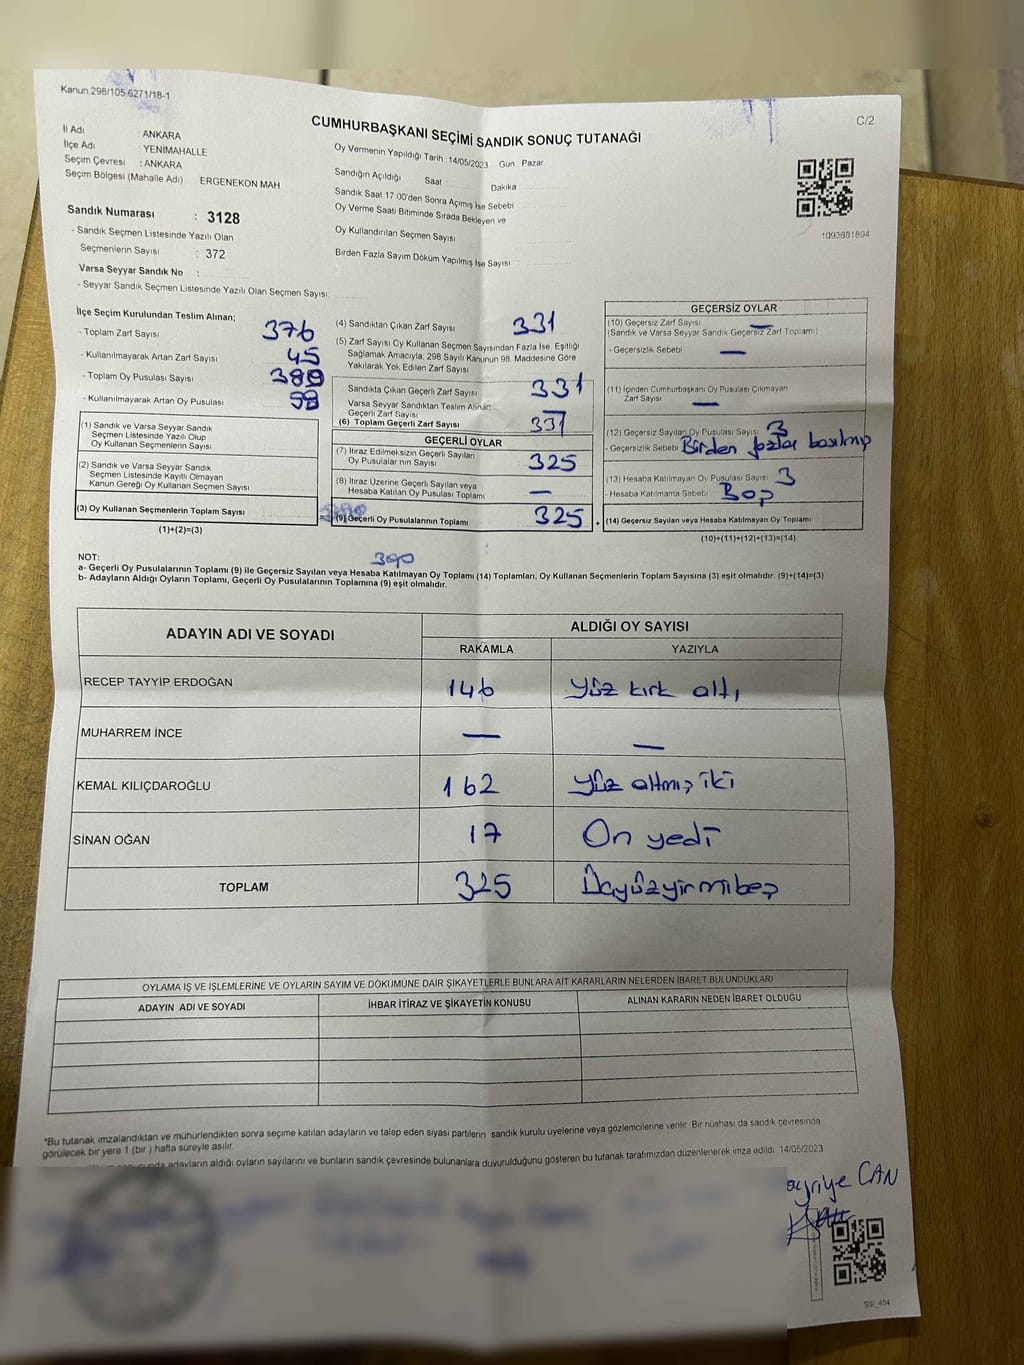 Kanun.298/105.6271/18-1
C/2
CUMHURBAŞKANI SEÇİMİ SANDIK SONUÇ TUTANAĞI
İl Adı : ANKARA
İlçe Adı : YENİMAHALLE
Seçim Çevresi : ANKARA
Seçim Bölgesi (Mahalle Adı) ERGENEKON MAH
Sandık Numarası : 3128
- Sandık Seçmen Listesinde Yazılı Olan
Seçmenlerin Sayısı : 372
Varsa Seyyar Sandık No :
- Seyyar Sandık Seçmen Listesinde Yazılı Olan Seçmen Sayısı:
Oy Vermenin Yapıldığı Tarih : 14/05/2023 Gün : Pazar
Sandığın Açıldığı Saat Dakika
Sandık Saat 17:00'den Sonra Açımış İse Sebebi
Oy Verme Saati Bitiminde Sırada Bekleyen ve
Oy Kullandırılan Seçmen Sayısı
Birden Fazla Sayım Döküm Yapılmış İse Sayısı :
1093681894
İlçe Seçim Kurulundan Teslim Alınan;
- Toplam Zarf Sayısı 376
- Kullanılmayarak Artan Zarf Sayısı 45
- Toplam Oy Pusulası Sayısı
- Kullanılmayarak Artan Oy Pusulası
(1) Sandık ve Varsa Seyyar Sandık
Seçmen Listesinde Yazılı Olup
Oy Kullanan Seçmenlerin Sayısı
(2) Sandık ve Varsa Seyyar Sandık
Seçmen Listesinde Kayıtlı Olmayan
Kanun Gereği Oy Kullanan Seçmen Sayısı
(3) Oy Kullanan Seçmenlerin Toplam Sayısı
(1)+(2)=(3)
(4) Sandıktan Çıkan Zarf Sayısı 331
(5) Zarf Sayısı Oy Kullanan Seçmen Sayısından Fazla İse, Eşitliği
Sağlamak Amacıyla; 298 Sayılı Kanunun 98. Maddesine Göre
Yakılarak Yok Edilen Zarf Sayısı
Sandıkta Çıkan Geçerli Zarf Sayısı 331
Varsa Seyyar Sandıktan Teslim Alınan
Geçerli Zarf Sayısı
(6) Toplam Geçerli Zarf Sayısı 331
GEÇERLİ OYLAR
(7) İtiraz Edilmeksizin Geçerli Sayılan
Oy Pusulalar nın Sayısı 325
(8) İtiraz Üzerine Geçerli Sayılan veya
Hesaba Katılan Oy Pusulası Toplamı —
(9) Geçerli Oy Pusulalarının Toplamı 325
GEÇERSİZ OYLAR
(10) Geçersiz Zarf Sayısı —
(Sandık ve Varsa Seyyar Sandık Geçersiz Zarf Toplamı)
- Geçersizlik Sebebi —
(11) İçinden Cumhurbaşkanı Oy Pusulası Çıkmayan
Zarf Sayısı —
(12) Geçersiz Sayılan Oy Pusulası Sayısı 3
- Geçersizlik Sebebi Birden fazla basılmış
(13) Hesaba Katılmayan Oy Pusulası Sayısı 3
- Hesaba Katılmama Sebebi Boş
(14) Geçersiz Sayılan veya Hesaba Katılmayan Oy Toplamı
(10)+(11)+(12)+(13)=(14)
390
NOT:
a- Geçerli Oy Pusulalarının Toplamı (9) ile Geçersiz Sayılan veya Hesaba Katılmayan Oy Toplamı (14) Toplamları, Oy Kullanan Seçmenlerin Toplam Sayısına (3) eşit olmalıdır. (9)+(14)=(3)
b- Adayların Aldığı Oyların Toplamı, Geçerli Oy Pusulalarının Toplamına (9) eşit olmalıdır.
ADAYIN ADI VE SOYADI
ALDIĞI OY SAYISI
RAKAMLA YAZIYLA
RECEP TAYYİP ERDOĞAN 146 Yüz kırk altı
MUHARREM İNCE — —
KEMAL KILIÇDAROĞLU 162 Yüz altmış iki
SİNAN OĞAN 17 On yedi
TOPLAM 325 Üçyüzyirmibeş
OYLAMA İŞ VE İŞLEMLERİNE VE OYLARIN SAYIM VE DÖKÜMÜNE DAİR ŞİKAYETLERLE BUNLARA AİT KARARLARIN NELERDEN İBARET BULUNDUKLARI
ADAYIN ADI VE SOYADI İHBAR İTİRAZ VE ŞİKAYETİN KONUSU ALINAN KARARIN NEDEN İBARET OLDUĞU
*Bu tutanak imzalandıktan ve mühürlendikten sonra seçime katılan adayların ve talep eden siyasi partilerin sandık kurulu üyelerine veya gözlemcilerine verilir. Bir nüshası da sandık çevresinde
görülecek bir yere 1 (bir ) hafta süreyle asılır.
adayların aldığı oyların sayılarını ve bunların sandık çevresinde bulunanlara duyurulduğunu gösteren bu tutanak tarafımızdan düzenlenerek imza edildi. 14/05/2023
CAN